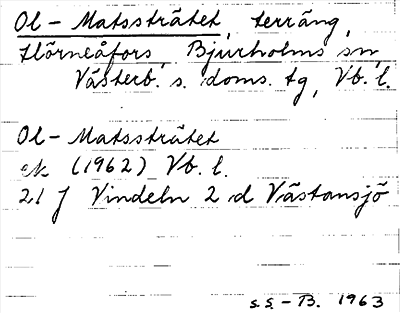 Ol-Matssträtet, terräng,
Hörneåfors Bjurholms sn
Västerb. s. doms. tg, Vb. l.
Ol-Matssträtet
ek (1962) Vb. l.
21 J Vindeln 2 d Västansjö
S.S.-B. 1963